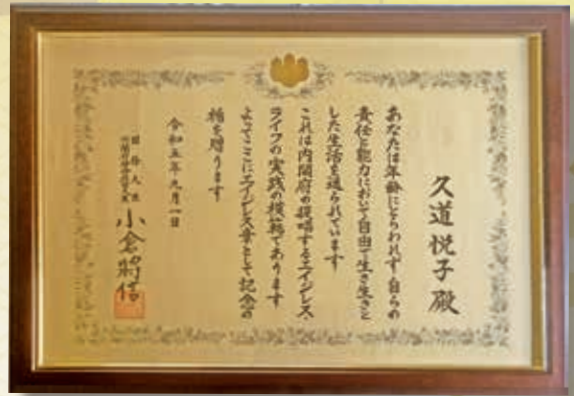 久道悦子殿
あなたは年齢にとらわれず自らの
責任と能力において自由で生き生きと
した生活を送られています
これは内閣府の提唱するエイジレス・
ライフの実践の模範であります
よってここにエイジレス章として記念の
楯を贈ります
令和五年九月一日
国務大臣
小倉將信